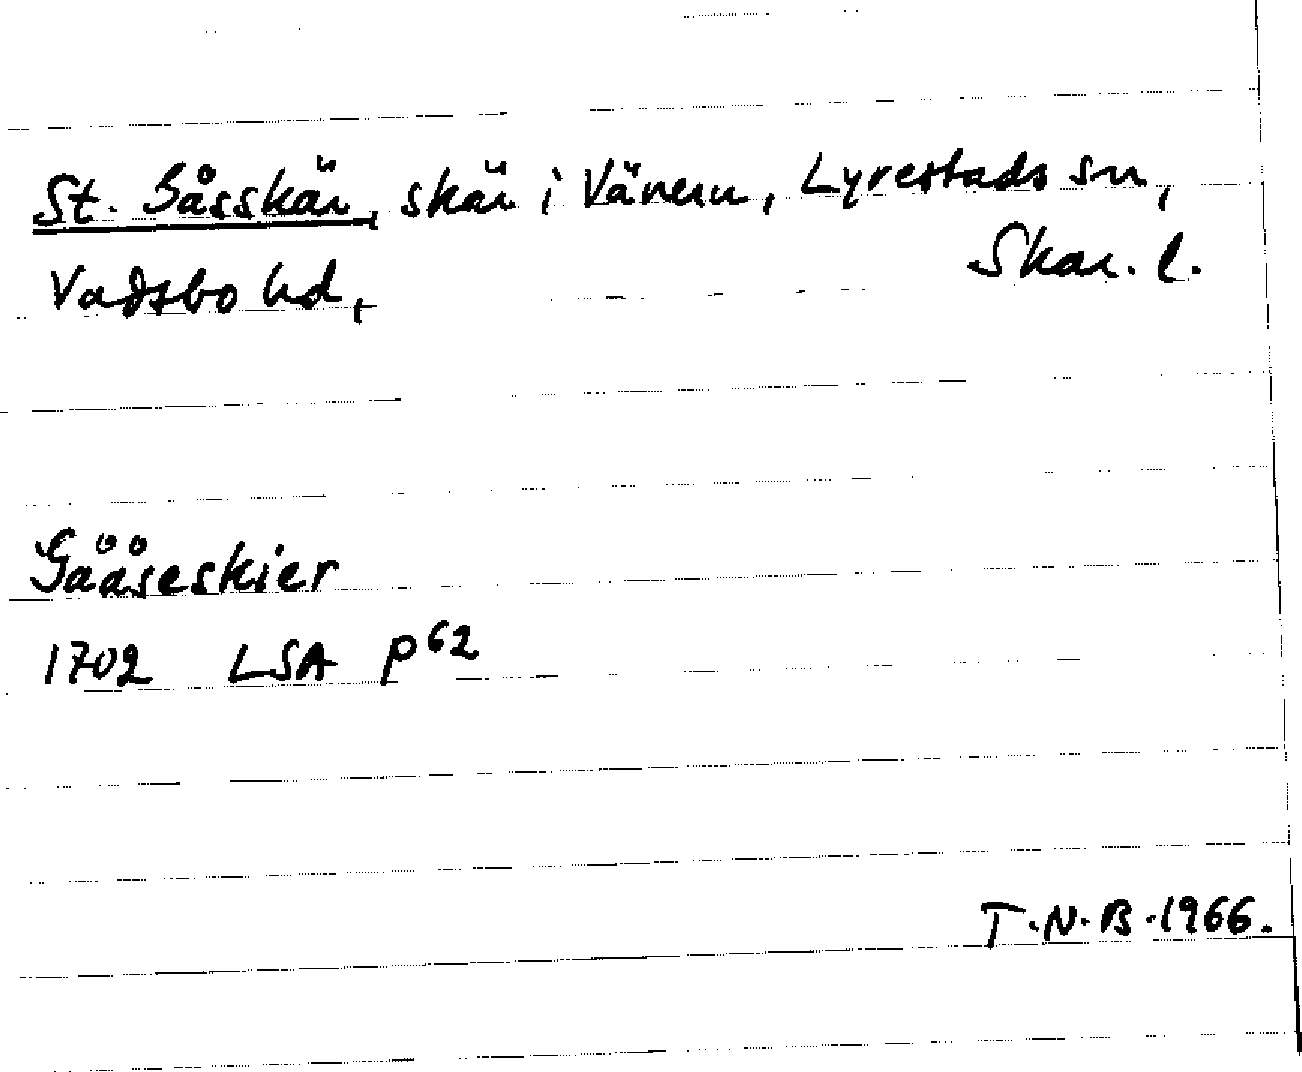 St. Gåsskär, skär i Vänern, Lyrestads sn,
Vadsbo hd, Skar. l.
Gååseskier
1702 LSA P 62
T.N.B. 1966.